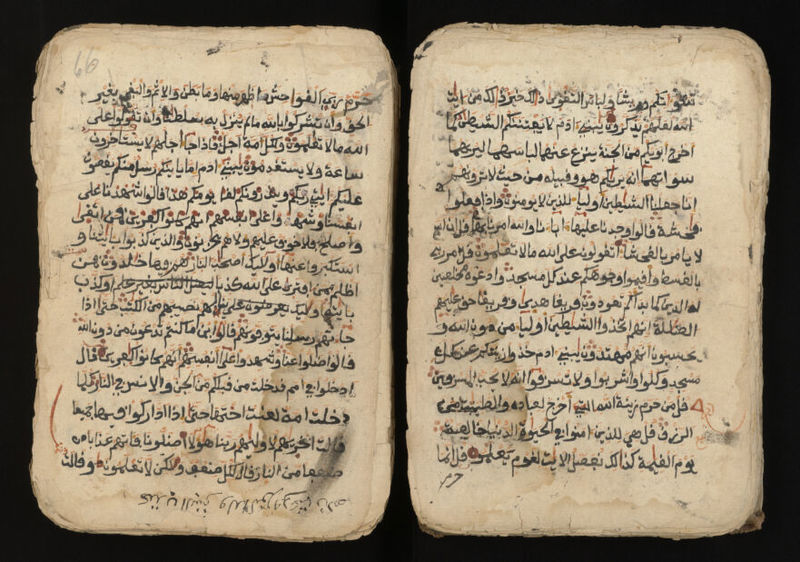 سوءتكم وريشا ولباس التقوى ذلك خير ذلك من ايت
الله لعلهم يذكرون يبني ادم لا يفتننكم الشيطن كما
اخرج ابويكم من الجنة ينزع عنهما لباسهما ليريهما
سواتهما انه يريكم هو وقبيله من حيث لا ترونهم
انا جعلنا الشيطين اوليا للذين لا يومنون واذا فعلوا
فحشة قالوا وجدنا عليها ابانا والله امرنا بها قل ان الله
لا يامر بالفحشا اتقولون على الله مالا تعلمون قل امر ربي
بالقسط واقيموا وجوهكم عند كل مسجد وادعوه مخلصين
له الدين كما بداكم تعودون فريقا هدى وفريقا حق عليهم
الضللة انهم اتخذوا الشيطين اوليا من دون الله و
يحسبون انهم مهتدون يبني ادم خذوا زينتكم عند كل
مسجد وكلوا واشربوا ولا تسرفوا انه لا يحب المسرفين
قل من حرم زينة الله التي اخرج لعباده والطيبت من
الرزق قل هي للذين امنوا في الحيوة الدنيا خالصة
يوم القيمة كذالك نفصل الايت لقوم يعلمون قل انما
حرم
66
حرم ربي الفواحش ما ظهر منها وما بطن والاثم والبغي بغير
الحق وان تشركوا بالله ما لم ينزل به سلطنا وان تقولوا على
الله مالا تعلمون ولكل امة اجل فاذا جا اجلهم لا يستاخرون
ساعة ولا يستقدمون يبني ادم اما ياتينكم رسل منكم يقصون
عليكم ايتي وينذرونكم لقا يومكم هذا قالوا شهدنا على
انفسنا وشهدوا على انفسهم انهم كانوا كفرين فمن اتقى
واصلح فلا خوف عليهم ولا هم يحزنون والذين كذبوا بايتنا و
استكبروا عنها اوليك اصحب النار هم فيها خلدون فمن
اظلم ممن افترى على الله كذبا او كذب
بايته اوليك ينالهم نصيبهم من الكتب حتى اذا
جاتهم رسلنا يتوفونهم قالوا اين ما كنتم تدعون من دون الله
قالوا ضلوا عنا وشهدوا على انفسهم انهم كانوا كفرين قال
ادخلوا في امم قد خلت من قبلكم من الجن والانس في النار كلما
دخلت امة لعنت اختها حتى اذا اداركوا فيها جميعا
قالت اخريهم لاوليهم ربنا هولا اضلونا فاتهم عذابا
ضعفا من النار قال لكل ضعف ولكن لا تعلمون وقالت